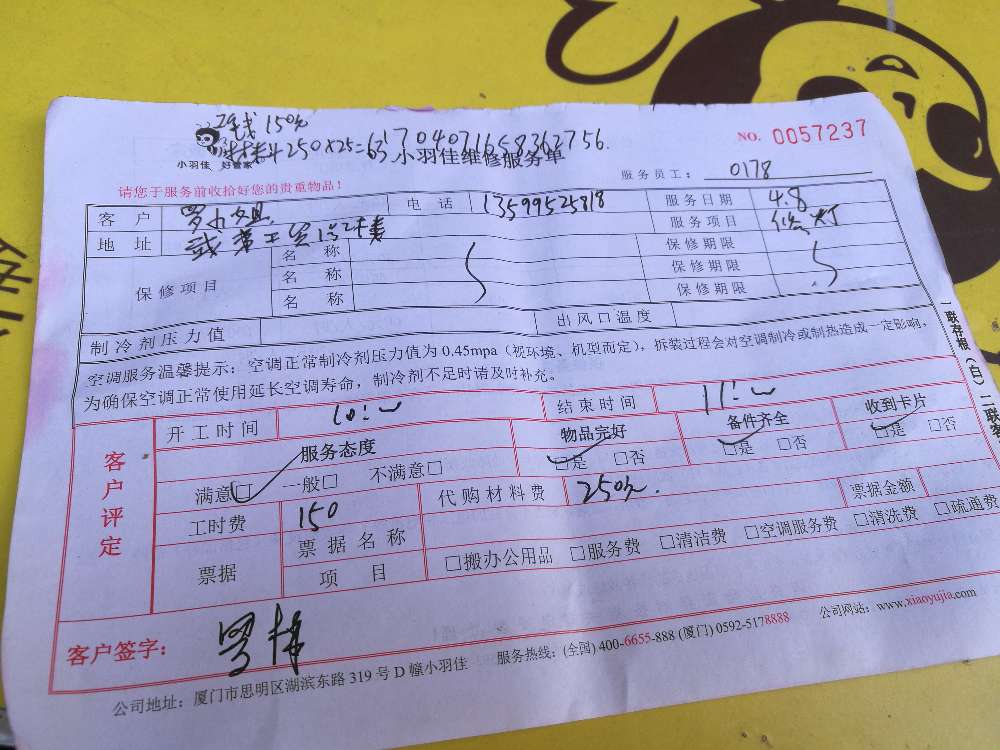 工钱150元
材料250×25=63 704071658362756.
NO. 0057237
小羽佳 好管家
小羽佳维修服务单
服务员工： 0178
请您于服务前收拾好您的贵重物品！
客 户 罗小姐 电 话 13599525818 服务日期 4.8
地 址 工贸 服务项目 修灯
保修项目
名 称 保修期限
名 称 保修期限
名 称 保修期限
制冷剂压力值 出风口温度
空调服务温馨提示：空调正常制冷剂压力值为 0.45mpa（视环境、机型而定），拆装过程会对空调制冷或制热造成一定影响，
为确保空调正常使用延长空调寿命，制冷剂不足时请及时补充。
客户评定
开工时间 10: 结束时间 11:
服务态度 物品完好 备件齐全 收到卡片
满意□ 一般□ 不满意□ □是 □否 □是 □否 □是 □否
工时费 150 代购材料费 250元. 票据金额
票据 票 据 名 称
项 目 □搬办公用品 □服务费 □清洁费 □空调服务费 □清洗费 □疏通费
客户签字：
公司地址：厦门市思明区湖滨东路 319 号 D 幢小羽佳 服务热线：(全国) 400-6655-888 (厦门) 0592-5178888 公司网站：www.xiaoyujia.com
一联存根（白）二联客